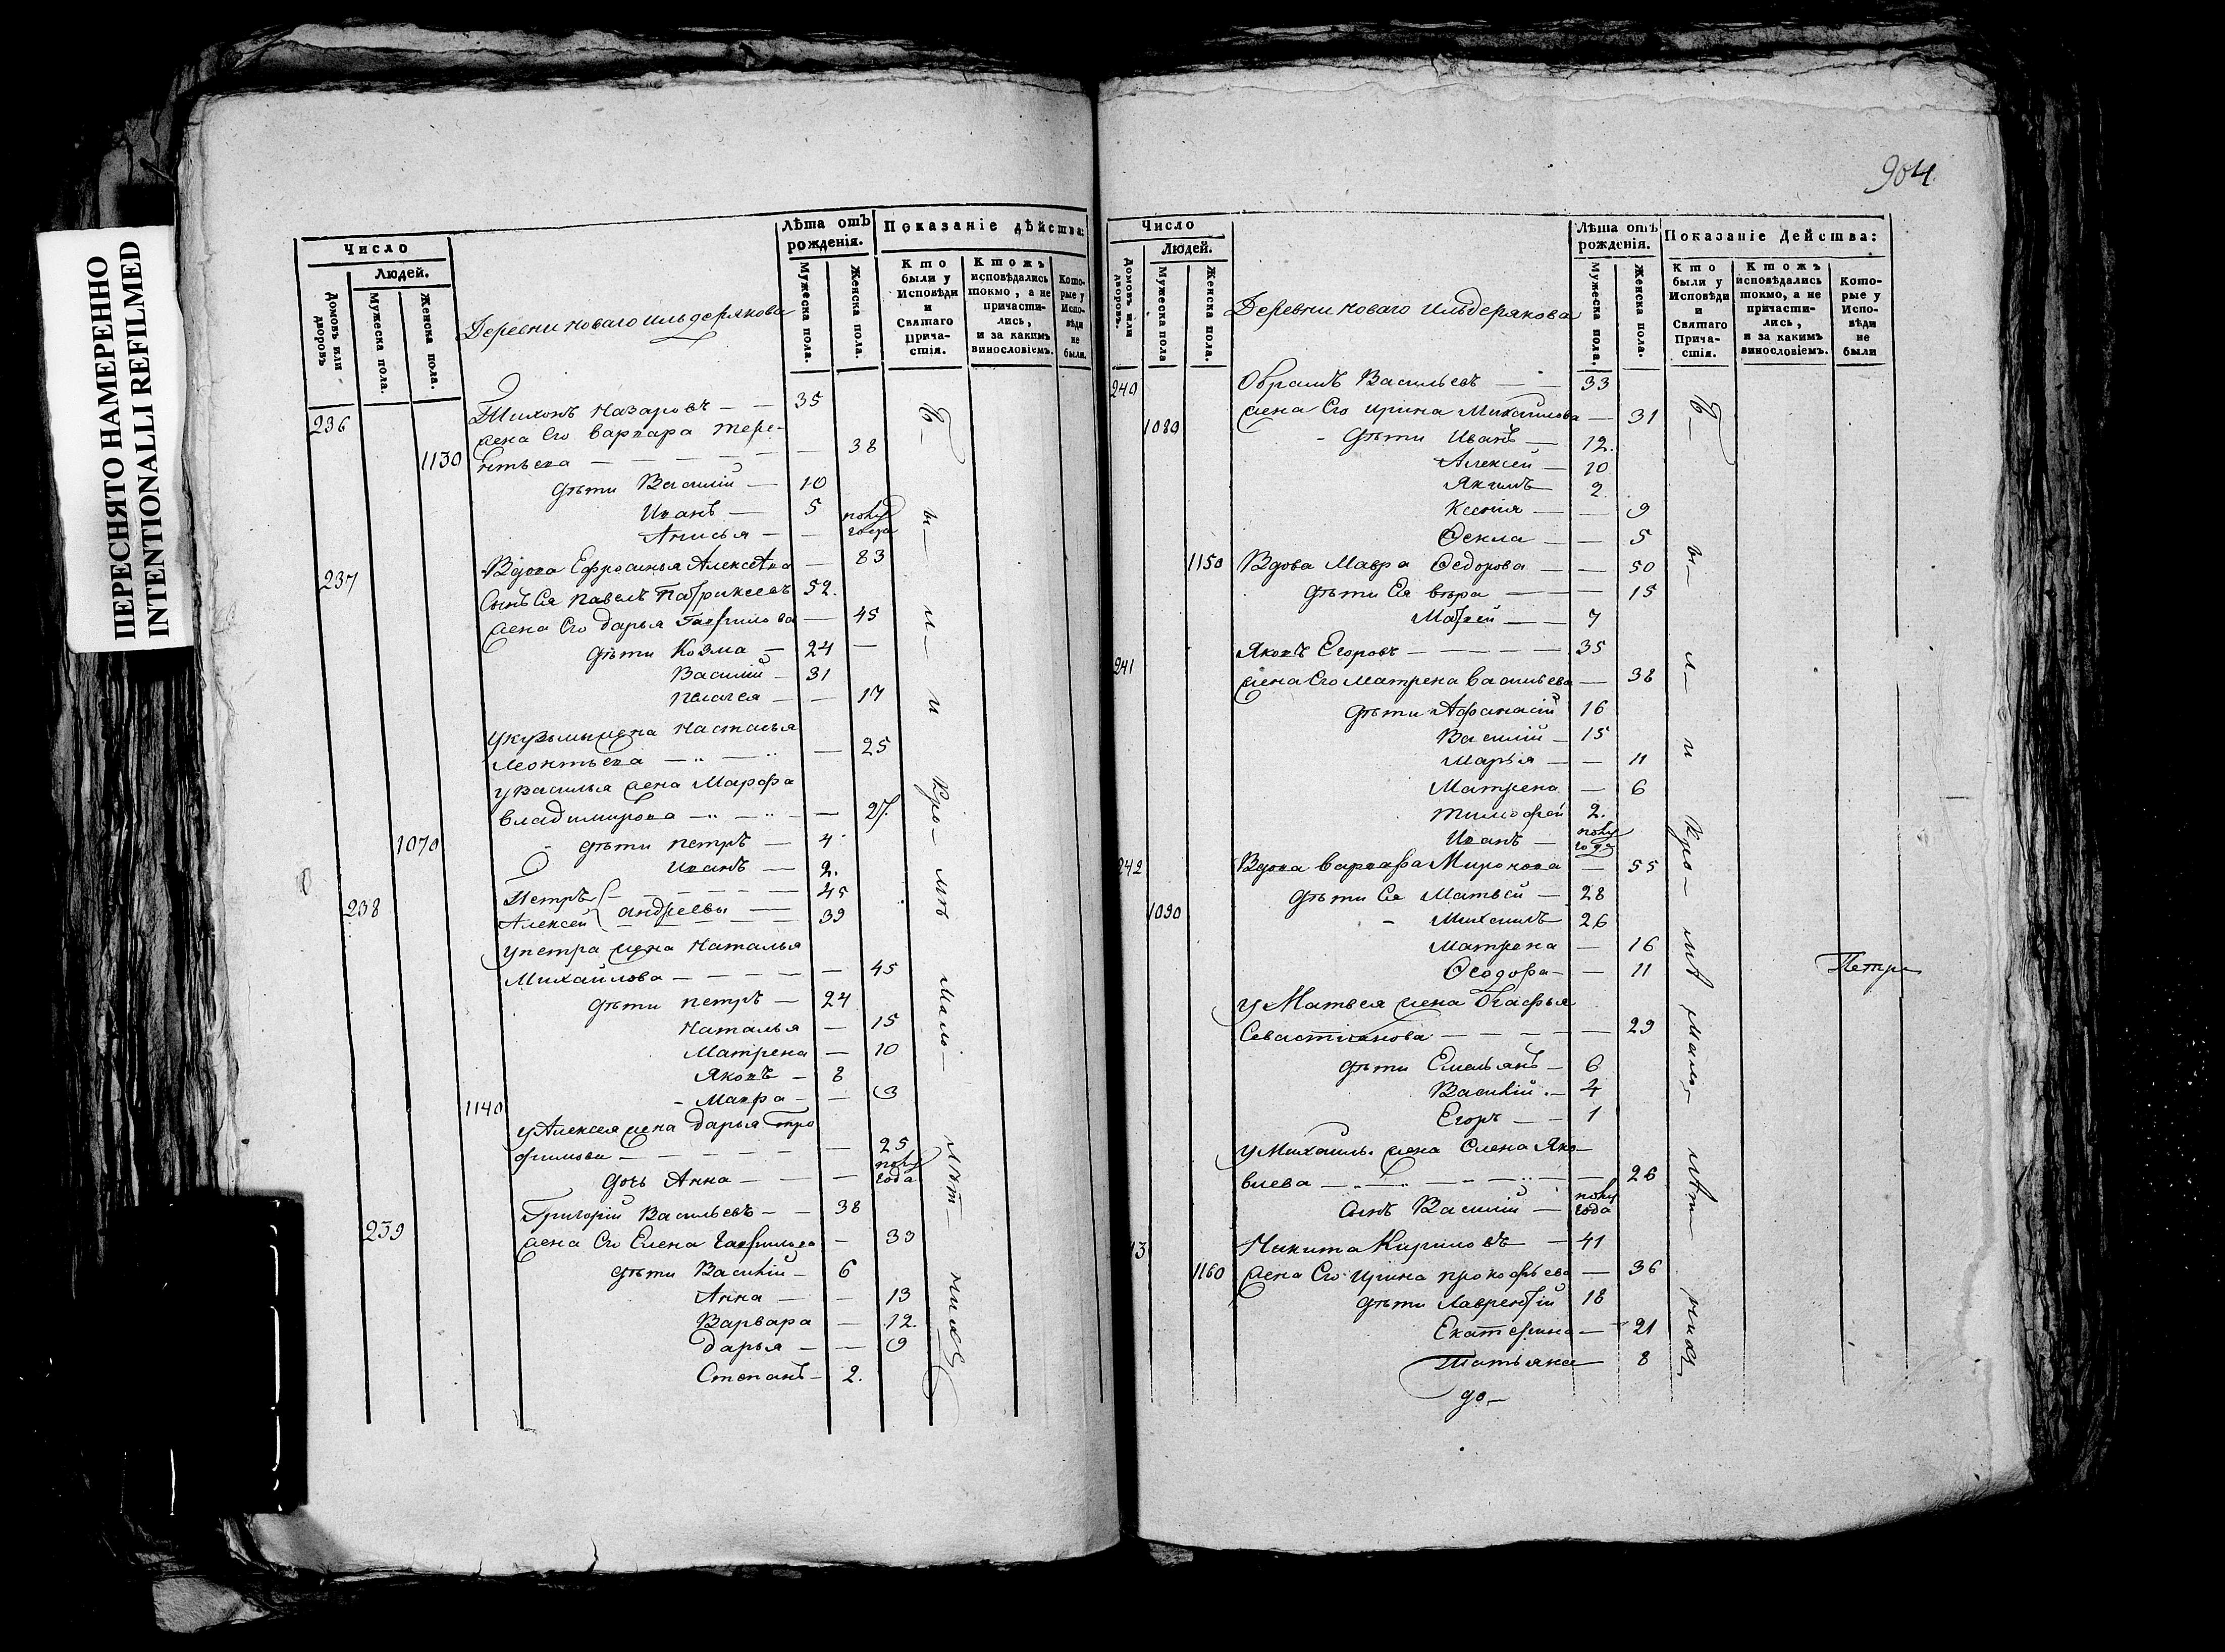 ПЕРЕСНЯТО НАМЕРЕННО
INTENTIONALLI REFILMED
Число
Людей.
Домовъ или дворовъ
Мужеска пола.
Женска пола.
Деревни новаго ильдерякова
Лѣта отъ рожденія.
Мужеска пола.
Женска пола.
Показаніе дѣйства:
Кто были у Исповѣди и Святаго Причастія.
Ктожъ исповѣдались токмо, а не причастились, и за какимъ винословіемъ.
Которые у Исповѣди не были.
236 Тихонъ Назаровъ — — 35
жена Его варвара тере-
1130 нтьева — — — — — 38
дѣти Василий — 10
Иванъ — 5
Анисья — — полу года
237 Вдова Ефросинья Алексѣева — 83
Сынъ Ея павелъ патрикеевъ 52.
жена Его дарья Гаврилова — 45
дѣти Козма — 24 —
Василий — 31
пелагея — — 17
укузьмы жена Настасья
леонтьева — — — 25
уВасилья жена Марфа
владимирова — — — 27.
1070 дѣти петръ — 4
Иванъ — 2.
238 Петръ — — — — 45
Алексей андреевы — — 39
упетра жена Наталья
Михайлова — — — — — 45
дѣти петръ — 24
Наталья — 15
Матрена — 10
Яковъ — 8
1140 Мавра — — 3
уАлексея жена дарья тро
фимова — — — — — — 25
дочь Анна — — — полу года
239 Григорій Васильевъ — — 38
жена Его Елена Гаврилова — 33
дѣти Василій — 6
Анна — — 13
Варвара — 12.
дарья — — 9
Степанъ — 2.
Бы- ли- и Кро- мѣ мало- лѣт- нихъ
904.
Число
Людей.
Домовъ или дворовъ.
Мужеска пола
Женска пола.
Деревни новаго ильдерякова
Лѣта отъ рожденія.
Мужеска пола.
Женска пола.
Показаніе Действа:
Кто были у Исповѣди и Святаго Причастія.
Ктожъ исповѣдались токмо, а не причастились, и за какимъ винословіемъ.
Которые у Исповѣди не были
240 Обрамъ Васильевъ — — 33
1080 жена Его ирина Михайлова — 31
дѣти Иванъ — 12.
Алексей — 10
Якимъ — 2
Ксения — — 9
Ѳекла — — 5
1150 Вдова Мавра Ѳедорова — — 50
дѣти Ея вѣра — — — 15
Матвей — — 7
241 Яковъ Егоровъ — — — — — 35
жена Его матрена васильева — 38
дѣти Афанасий 16
Василий — 15
Марья — — 11
Матрена — 6
тимофей 2.
Иванъ — полу года
242 Вдова варвара Миронова — 55
дѣти Ея Матвей — 28
1090 Михаилъ 26
Матрена — 16
Ѳеодора — — 11
Петръ
уМатвея жена Агафья
Севастиянова — — — — — 29
дѣти Емельянъ — 6
Василий — 4
Егоръ — — 1
уМихаилы жена Елена Яко-
влева — — — — — — 26
Сынъ Василий — полу года
Никита Кириловъ — 41
1160 жена Его ирина прокофьева — 36
дѣти Лаврентій 18
Екатерина — 21
Татьяна 8
до-
Бы- ли- и Кро- мѣ мало- лѣт- нихъ